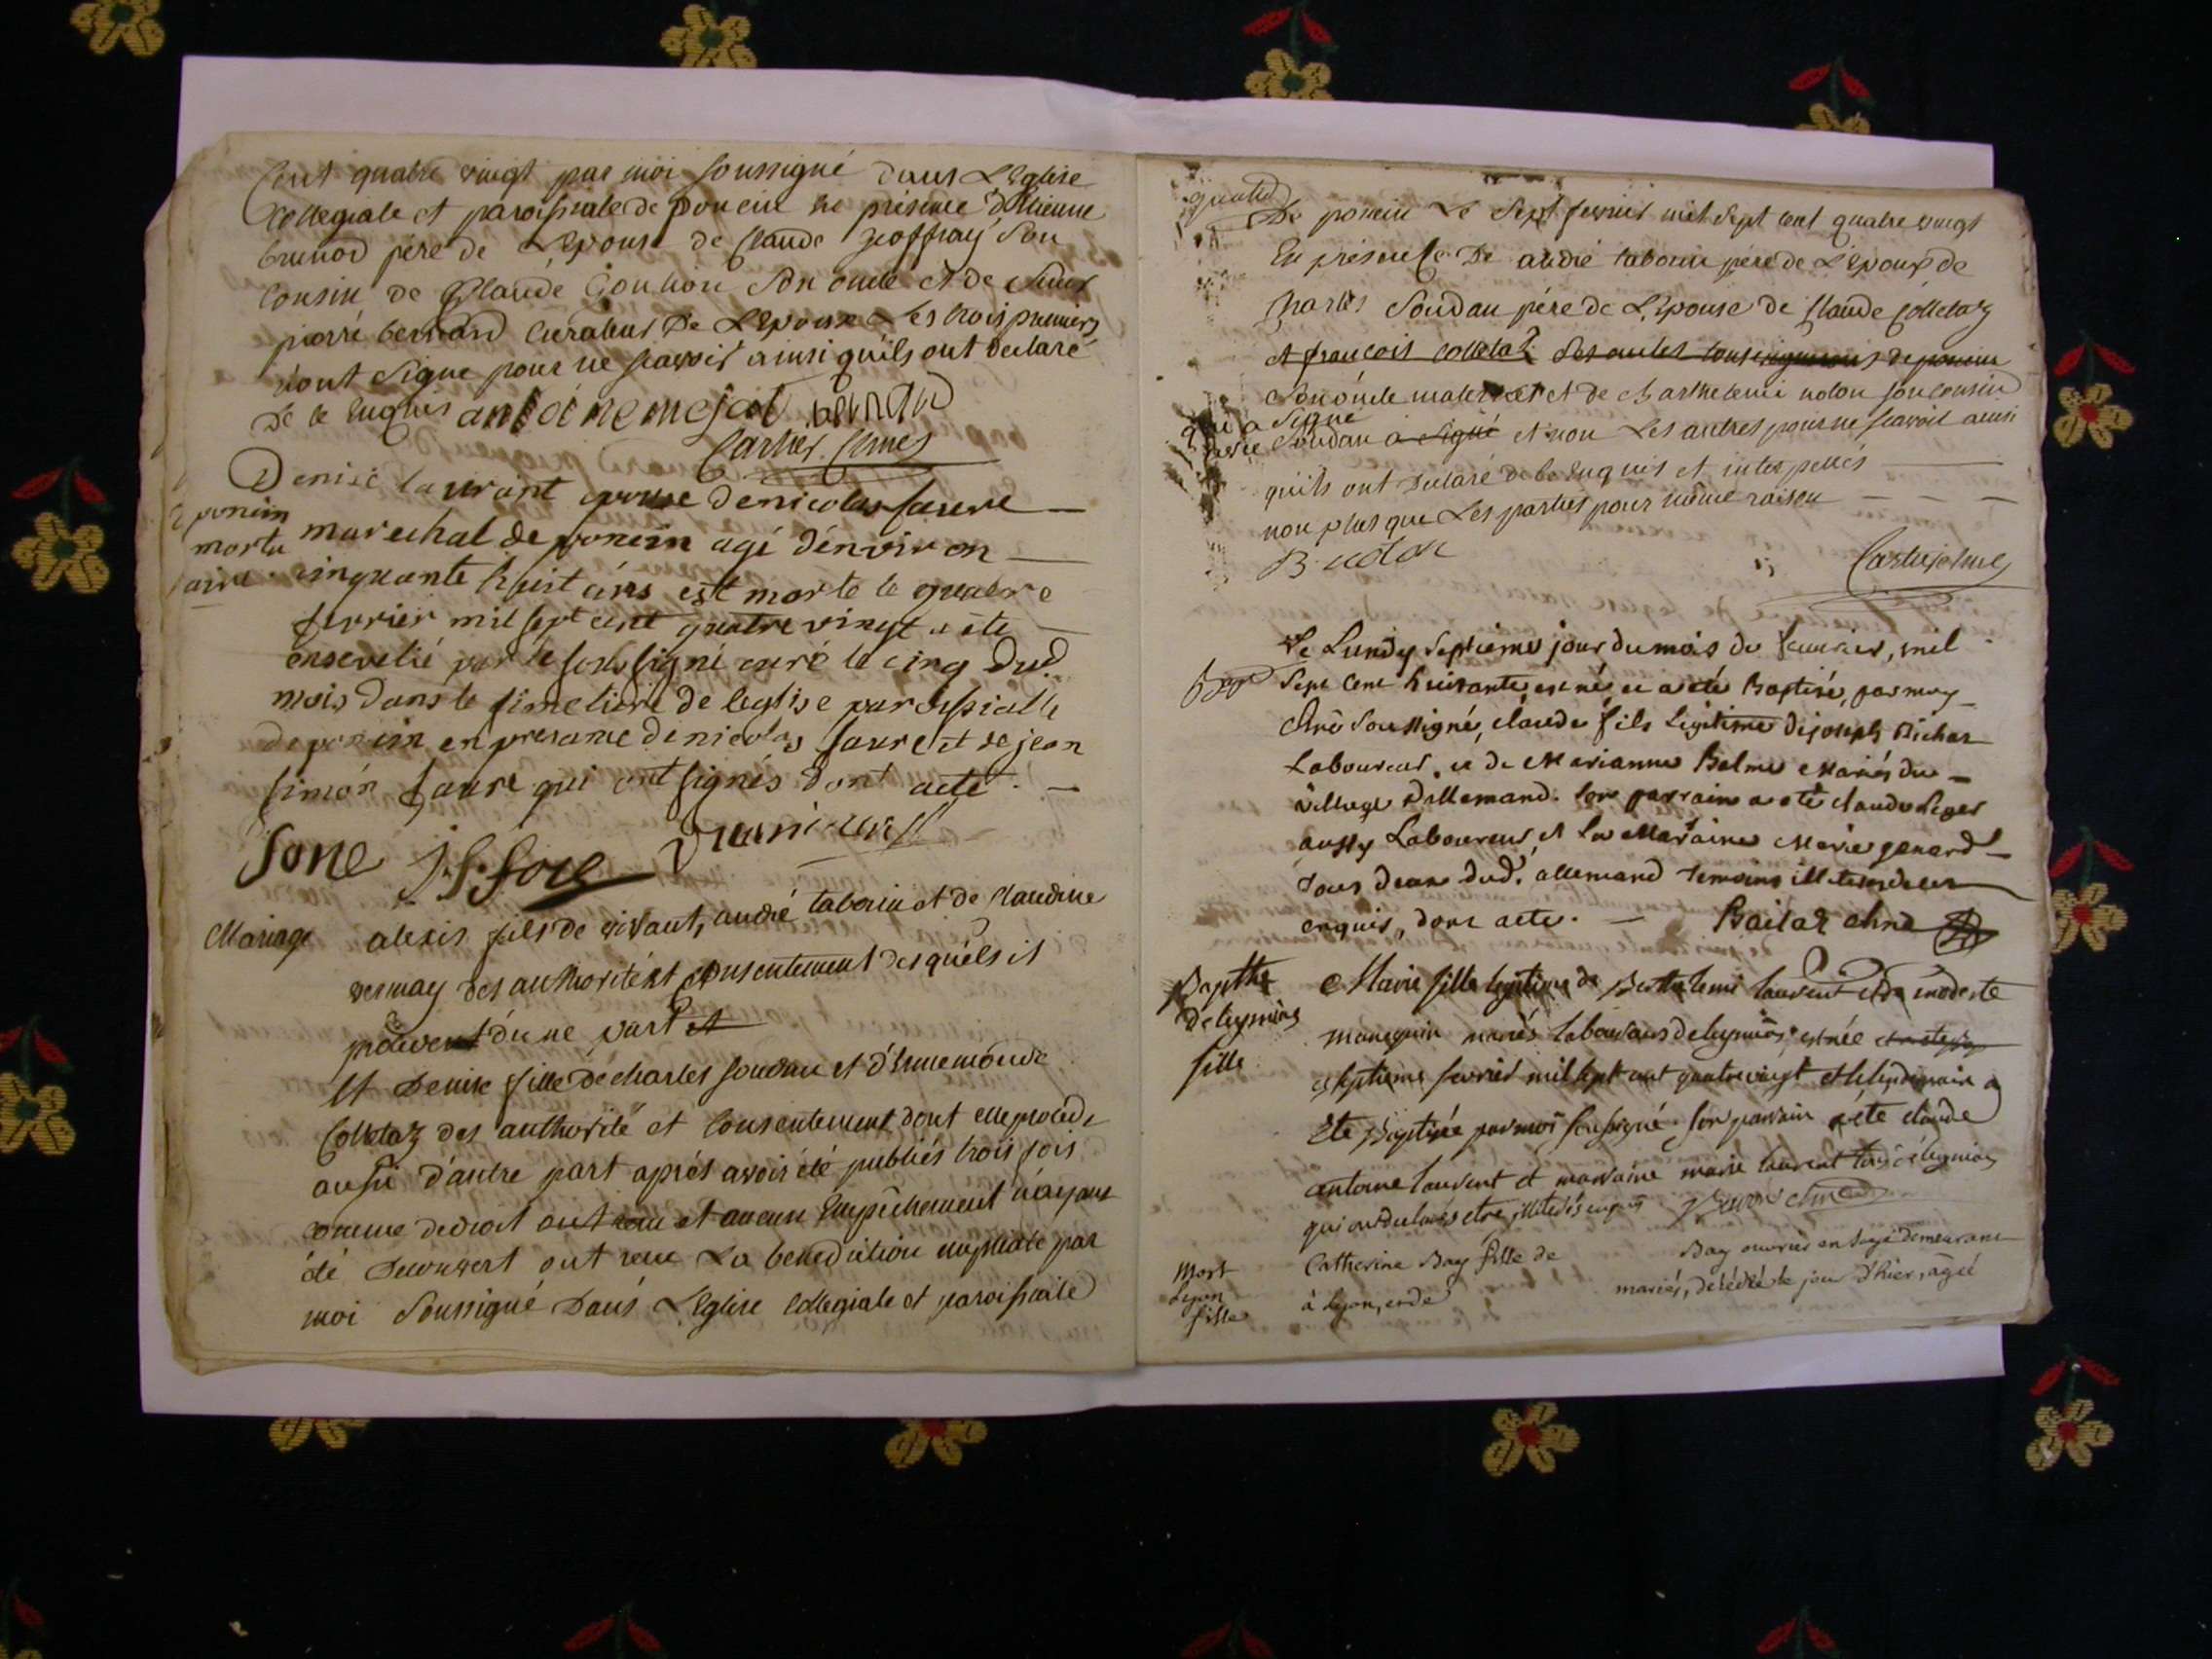 Cent quatre vingt par moi soussigné dans L'Eglise
Collegiale et paroissiale de poncin en présence d'Etienne
brunod père de L'Epouse de Claude joffray son
Cousin de Claude son oncle et de Sieur
pierre bernard Curateur De L'Epouse Les trois premiers
n'ont Signe pour ne scavoir ainsi quils ont declaré
De ce Enquis antoine mejat bernard
Denise laurant epouse denicolas faure
poncin marechal de poncin agé d'environ
mortu cinquante huit ans est morte le quatre
faure
fevrier mil sept cent quatre vingt a été
ensevelie par le sous signé curé le cinq dud.
mois dans le simetiere de leglise paroissialle
de poncin en presance denicolas faure et de jean
simon faure qui ont signés dont acte.
Mariage alexis fils de vivant, andré taborin et de Claudine
vermay des authorité et consentement desquels il
procede d'une part et
Et Denise fille de charles soudan et d'
Colletaz des authorité et Consentement dont elle procede
aussi d'autre part aprés avoir été publiés trois fois
comme de droit et aucun Empêchement n'ayant
été Decouvert ont recu La benediction nuptiale par
moi Soussigné Dans L'Eglise Collegiale et paroissiale
De poncin Le Sept fevrier mil Sept cent quatre vingt
En présence De andré taborin père de L'Epoux de
Charles Soudan père de L'Epouse de Claude Colletaz
et francois colletaz ses oncles tous de poncin
Son oncle maternel et de Barthelemi nolon son cousin
qui a Signé
Soudan a signé et non Les autres pour ne scavoir ainsi
quils ont Declaré de ce Enquis et interpellés
non plus que Les parties pour même raison
Le Lundy septieme jour du mois de feuvrier, mil
Bap sept cent huitante, est né et a eté Baptisé, par moy
soussigné, claude fils Legitime de joseph Richar
Laboureur, et de Marianne Balme Mariés du
village d'allemand. son parrain a eté claude Leger
aussy Laboureur, et la Marraine Marie genard
tous deux dud. allemand temoins illiterés de ce
enquis, dont acte.
Bapthe Marie fille legitime de Berthelemi laurent et de modeste
mariés laboureurs est née
fille
septieme fevrier mil sept cent quatre vingt et le lendemain a
Eté Baptisé par moi soussigné. son parrain a été claude
antoine laurent et marraine marie laurent tous
qui ont declarés etre illiterés enquis
Mort Catherine Bay fille de Bay ouvrier en soye demeurant
Lyon à Lyon, et de mariés, décédée le jour d'hier, agée
fille